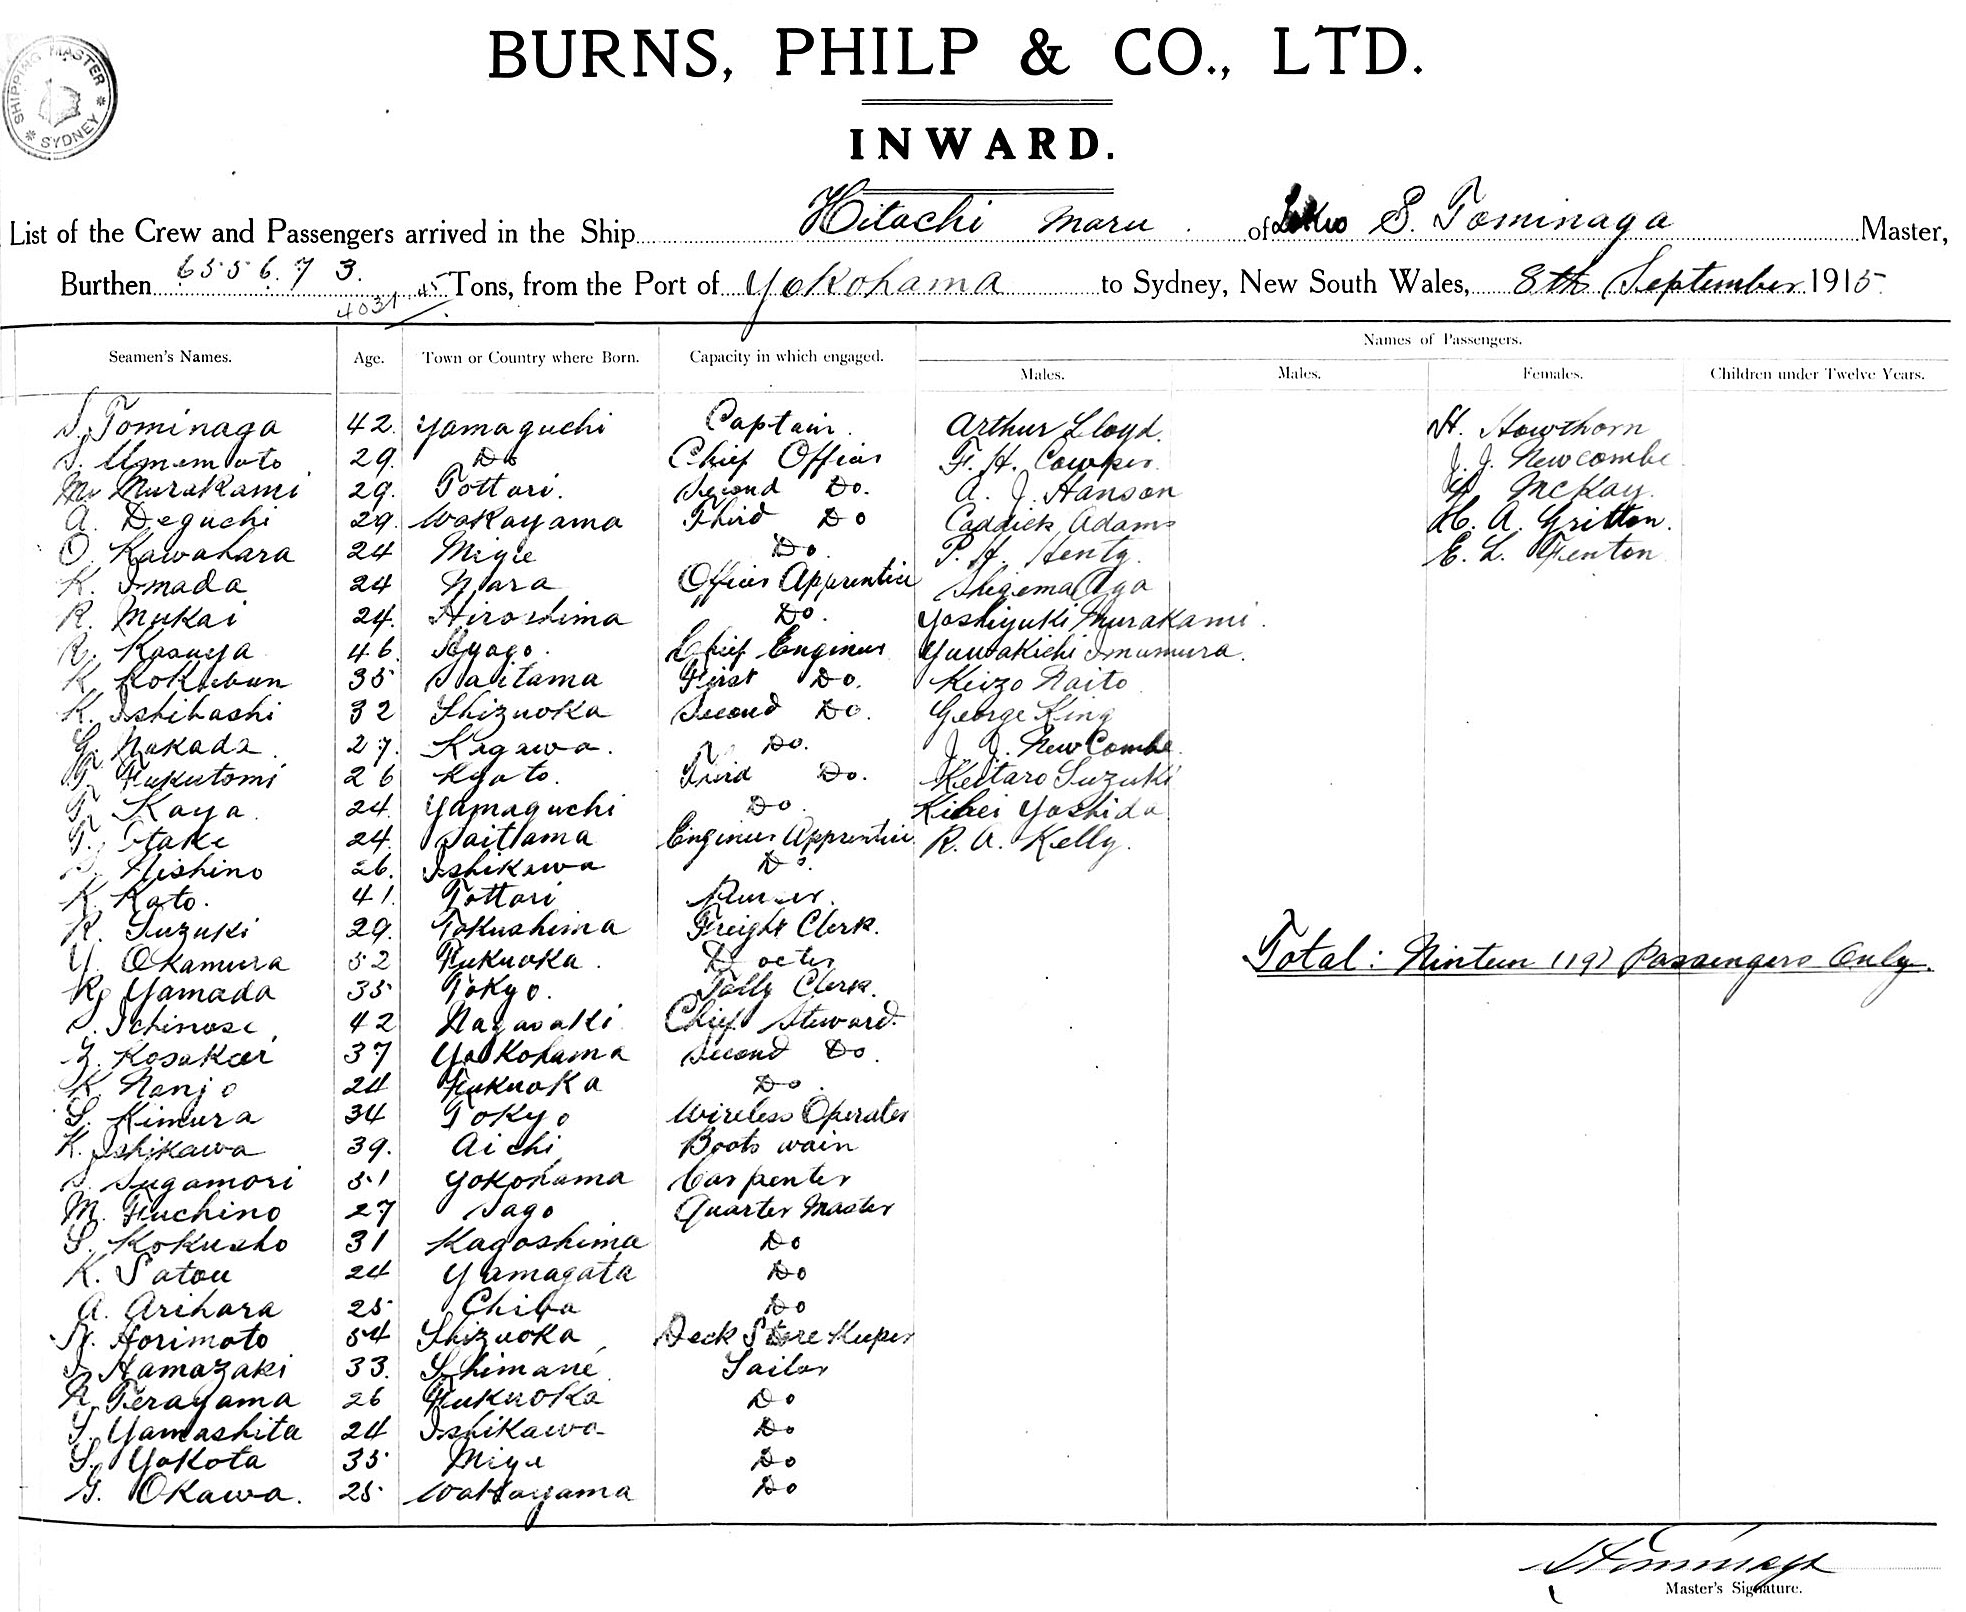 SHIPPING MASTER
SYDNEY
BURNS, PHILP & CO., LTD.
INWARD.
List of the Crew and Passengers arrived in the Ship Hitachi Maru of S. Tominaga Master,
Burthen 6556.73. Tons, from the Port of Yokohama to Sydney, New South Wales, 8th September 1915
4031.45
Names of Passengers.
Seamen's Names. Age. Town or Country where Born. Capacity in which engaged. Males. Males. Females. Children under Twelve Years.
S. Tominaga 42. Yamaguchi Captain. Arthur Lloyd. H. Howthorn
S. Umemoto 29. Do Chief Officer F. H. Cowper. J. J. Newcombe
M. Murakami 29. Tottori. Second Do. A. J. Hanson McKay.
A. Deguchi 29. Wakayama Third Do Caddick Adams H. A. Gritton.
O. Kawahara 24 Miye Do. P. H. Henty. E. L. Fenton
K. Imada 24 Nara Officer Apprentice Shigema Oga
R. Mukai 24. Hiroshima Do. Yoshiyuki Murakami.
R. Kasuya 46. Hyogo. Chief Engineer Yuwakichi Imumura.
K. Kokubun 35 Saitama First Do. Keizo Naito
K. Ishibashi 32 Shizuoka Second Do. George King
G. Nakada 27. Kagawa. Do. J. J. NewCombe.
T. Fukutomi 26 Kyoto. Third Do. Keitaro Suzuki
T. Kaya. 24. Yamaguchi Do. Kihei Yoshida
T. Otake 24. Saitama Engineer Apprentice R. A. Kelly.
S. Nishino 26. Ishikawa Do.
K. Kato. 41. Tottori Purser.
R. Suzuki 29. Tokushima Freight Clerk.
Y. Okamura 52 Fukuoka. Docter
Total: Ninteen (19) Passengers Only.
K. Yamada 35 Tokyo. Tally Clerk.
S. Ichinose 42 Nagasaki Chief Steward.
Z. Kosakai 37 Yokohama Second Do.
K. Nanjo 24 Fukuoka Do.
S. Kimura 34 Tokyo Wireless Operater
K. Ishikawa 39. Aichi Boats wain
S. Sugamori 51 Yokohama Carpenter
M. Fuchino 27 Sago Quarter Master
S. Kokusho 31 Kagoshima Do
K. Satou 24 Yamagata Do
A. Arihara 25 Chiba Do
N. Horimoto 54 Shizuoka Deck Store Keeper
Hamazaki 33. Shimane Sailor
Terayama 26 Fukuoka Do
S. Yamashita 24 Ishikawa Do
S. Yokota 35 Miye Do
G. Okawa. 25 Wakayama Do
S Tominaga
Master's Signature.